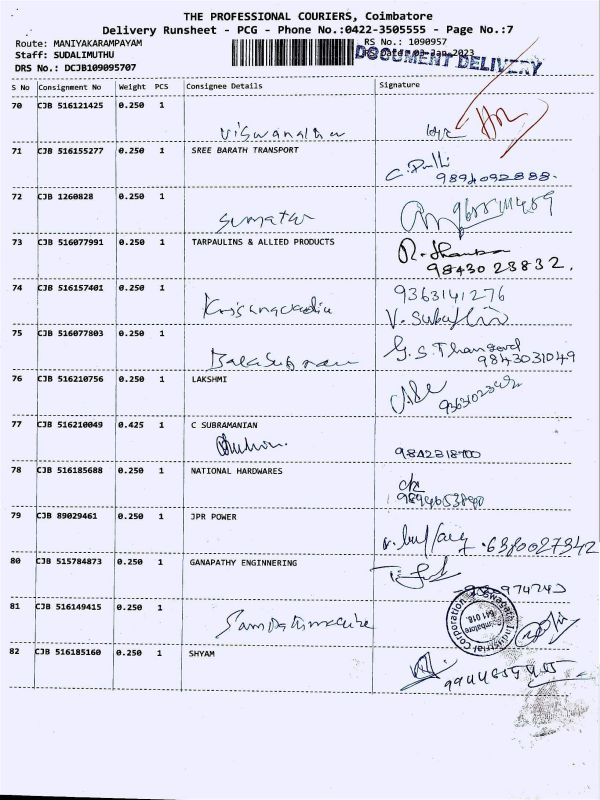 THE PROFESSIONAL COURIERS, Coimbatore
Delivery Runsheet - PCG - Phone No.:0422-3505555 - Page No.:7
Route: MANIYAKARAMPAYAM
RS No.: 1090957
Staff: SUDALIMUTHU
RS Date: 03-Jan-2023
DOCUMENT DELIVERY
DRS No.: DCJB109095707
S No Consignment No Weight PCS Consignee Details Signature
70 CJB 516121425 0.250 1
Viswanathan
71 CJB 516155277 0.250 1 SREE BARATH TRANSPORT
9894092888
72 CJB 1260828 0.250 1
73 CJB 516077991 0.250 1 TARPAULINS & ALLIED PRODUCTS
98430 23832.
74 CJB 516157401 0.250 1
9363141276
75 CJB 516077803 0.250 1
G.S.Thangavel
9843031049
76 CJB 516210756 0.250 1 LAKSHMI
77 CJB 516210049 0.425 1 C SUBRAMANIAN
78 CJB 516185688 0.250 1 NATIONAL HARDWARES
79 CJB 89029461 0.250 1 JPR POWER
6380027342
80 CJB 515784873 0.250 1 GANAPATHY ENGINNERING
81 CJB 516149415 0.250 1
Swagath Industrial Corporation
Coimbatore
641 018.
82 CJB 516185160 0.250 1 SHYAM